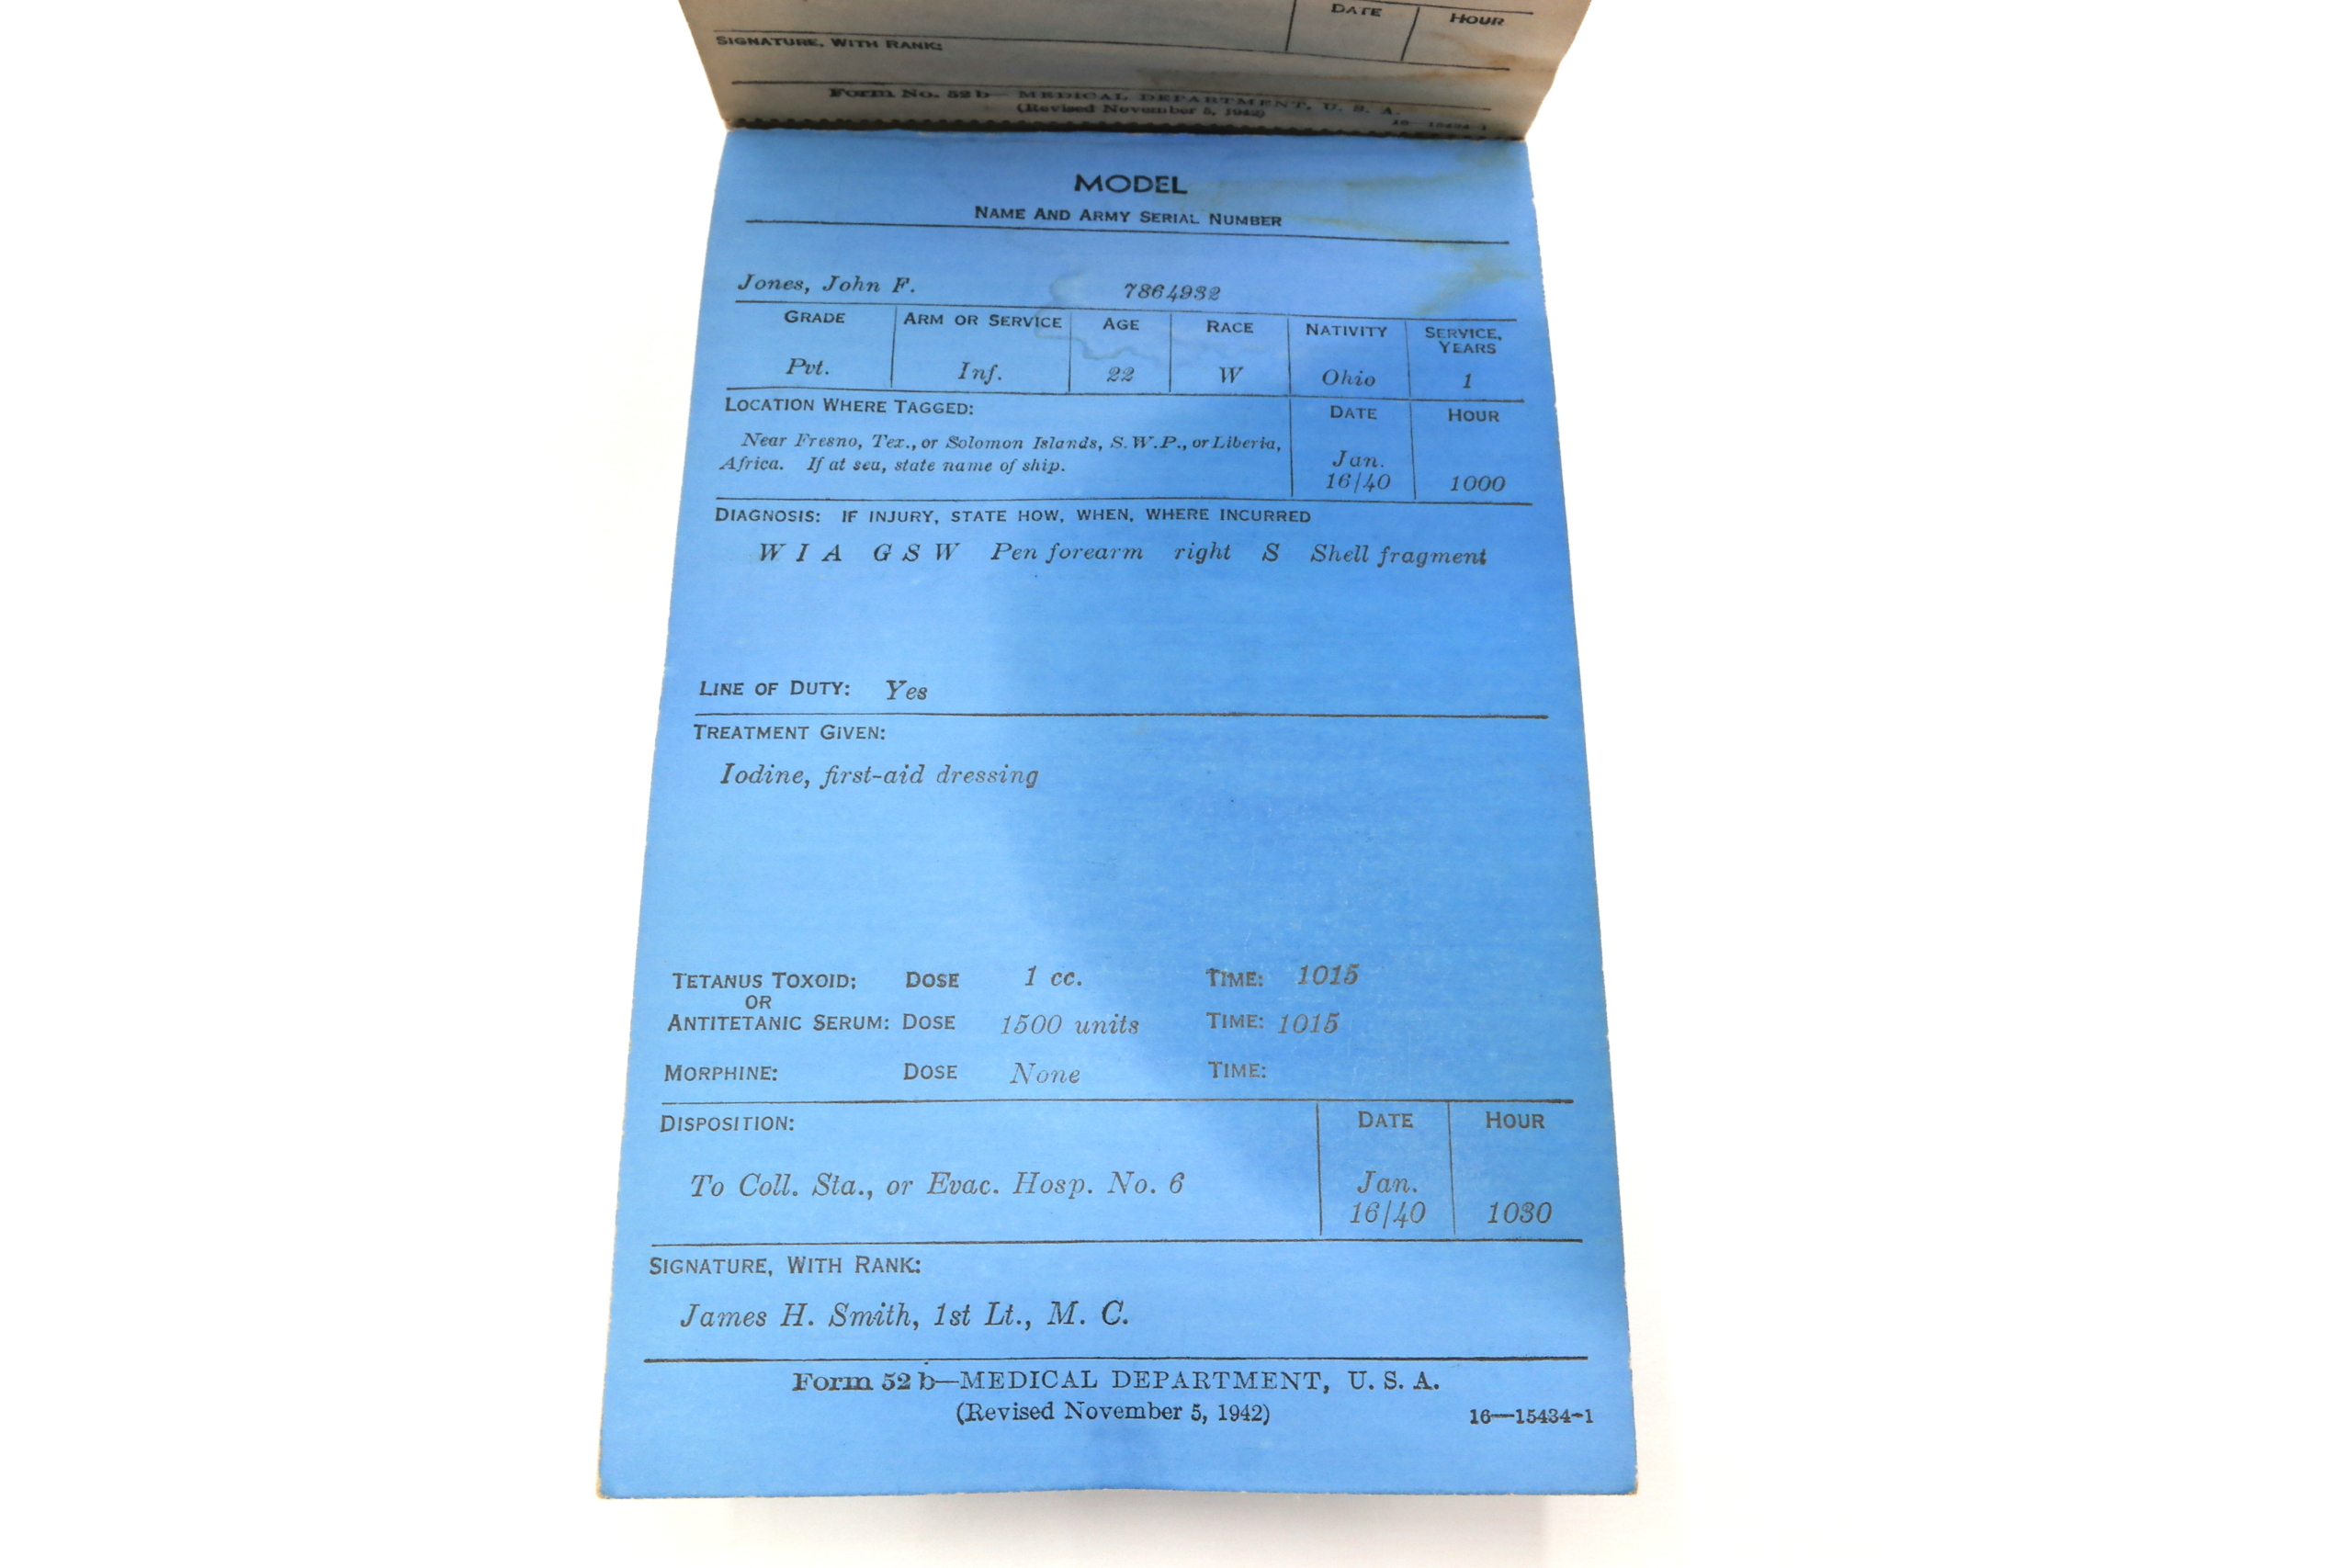 DATE HOUR
SIGNATURE, WITH RANK:
Form No. 52 b— MEDICAL DEPARTMENT, U. S. A.
(Revised November 5, 1942)
16—15434-1
MODEL
NAME AND ARMY SERIAL NUMBER
Jones, John F. 7864932
GRADE ARM OR SERVICE AGE RACE NATIVITY SERVICE, YEARS
Pvt. Inf. 22 W Ohio 1
LOCATION WHERE TAGGED: DATE HOUR
Near Fresno, Tex., or Solomon Islands, S. W. P., or Liberia,
Africa. If at sea, state name of ship. Jan. 16/40 1000
DIAGNOSIS: IF INJURY, STATE HOW, WHEN, WHERE INCURRED
W I A G S W Pen forearm right S Shell fragment
LINE OF DUTY: Yes
TREATMENT GIVEN:
Iodine, first-aid dressing
TETANUS TOXOID: DOSE 1 cc. TIME: 1015
OR
ANTITETANIC SERUM: DOSE 1500 units TIME: 1015
MORPHINE: DOSE None TIME:
DISPOSITION: DATE HOUR
To Coll. Sta., or Evac. Hosp. No. 6 Jan. 16/40 1030
SIGNATURE, WITH RANK:
James H. Smith, 1st Lt., M. C.
Form 52 b—MEDICAL DEPARTMENT, U. S. A.
(Revised November 5, 1942)
16—15434-1